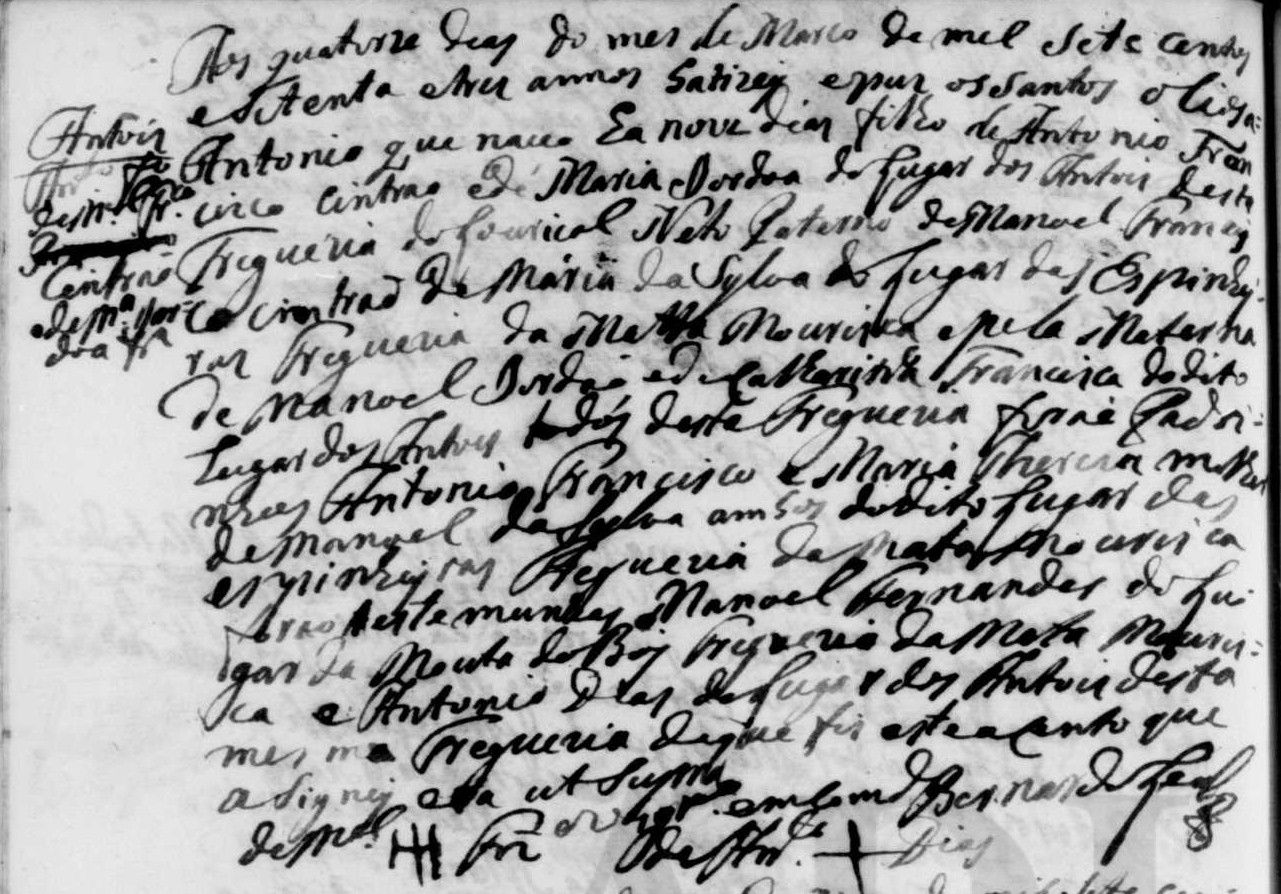 Aos quatorze dias do mes de Marco de mil sete centos
e setenta e tres annos Batizej e puz os Santos olios a
Antonio que naceo ha nove dias filho de Antonio Fran
cisco Cintrao e de Maria Jordoa do Lugar dos Antois desta
Fregueria do Louriçal Neto Paterno de Manoel Francis
co Cintraõ e de Maria da Sylva do Lugar das Espinhei-
ras Fregueria da Matta Mourisca e pela Materna
de Manoel Jordaõ e de Catherina Francisca do dito
Lugar dos Antois todos desta Fregueria foraõ Padri-
nhos Antonio Francisco e Maria Thereza molher
de Manoel da Sylva ambos do dito Lugar das
espinheiras Fregueria da Mata Mourisca
foraõ testemunhas Manoel Fernandes do Lu
gar da Mouta do Boj Fregueria da Mata Mouris-
ca e Antonio Dias do Lugar dos Antois desta
mesma Fregueria de que fis este acento que
asigney era ut supra
Bernardo Leal
de Mel. Frz de Antº. Dias
Antois
Antº fº
de Antº Fr.co
Cintraõ
e de Mª Jor
doa